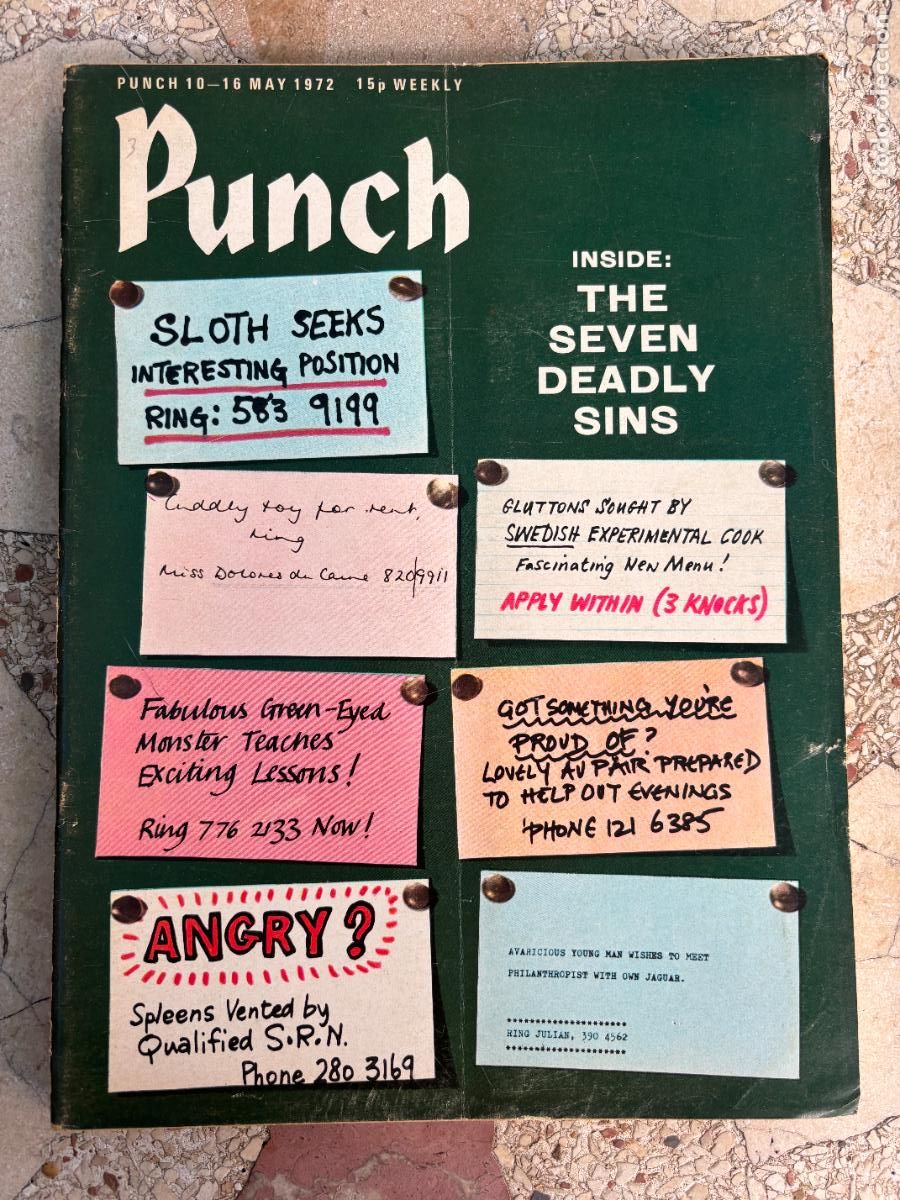 PUNCH 10–16 MAY 1972 15p WEEKLY
Punch
INSIDE:
THE
SEVEN
DEADLY
SINS
SLOTH SEEKS
INTERESTING POSITION
RING: 583 9199
Cuddly toy for rent,
ring
Miss Dolores du Caine 820 9911
GLUTTONS SOUGHT BY
SWEDISH EXPERIMENTAL COOK
Fascinating New Menu!
APPLY WITHIN (3 KNOCKS)
Fabulous Green-Eyed
Monster Teaches
Exciting Lessons!
Ring 776 2133 Now!
GOT SOMETHING YOU'RE
PROUD OF?
LOVELY AU PAIR PREPARED
TO HELP OUT EVENINGS
'PHONE 121 6385
ANGRY?
Spleens Vented by
Qualified S.R.N.
Phone 280 3169
AVARICIOUS YOUNG MAN WISHES TO MEET
PHILANTHROPIST WITH OWN JAGUAR.
RING JULIAN, 390 4562
todocoleccion